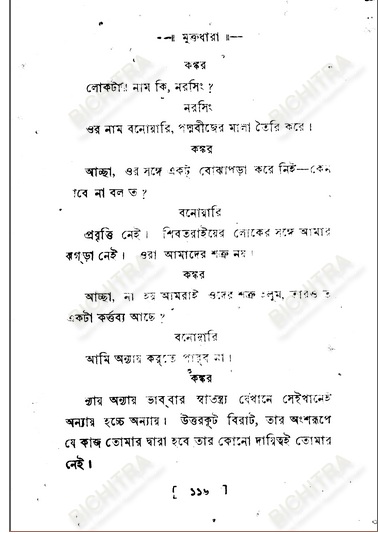 ॥ মুক্তধারা ॥
কঙ্কর
লোকটার নাম কি, নরসিং ?
নরসিং
ওর নাম বনোয়ারি, পদ্মবীজের মালা তৈরি করে ।
কঙ্কর
আচ্ছা, ওর সঙ্গে একটু বোঝাপড়া করে নিই—কেন
যাবে না বল ত ?
বনোয়ারি
প্রবৃত্তি নেই । শিবতরাইয়ের লোকের সঙ্গে আমার
ঝগড়া নেই । ওরা আমাদের শত্রু নয় ।
কঙ্কর
আচ্ছা, না হয় আমরাই ওদের শত্রু হলুম, তারও ত
একটা কর্ত্তব্য আছে ?
বনোয়ারি
আমি অন্যায় করতে পারব না ।
কঙ্কর
ন্যায় অন্যায় ভাববার স্বাতন্ত্র্য যেখানে সেইখানেই
অন্যায় হচ্চে অন্যায় । উত্তরকূট বিরাট, তার অংশরূপে
যে কাজ তোমার দ্বারা হবে তার কোনো দায়িত্বই তোমার
নেই ।
[ ১১৬ ]
BICHITRA